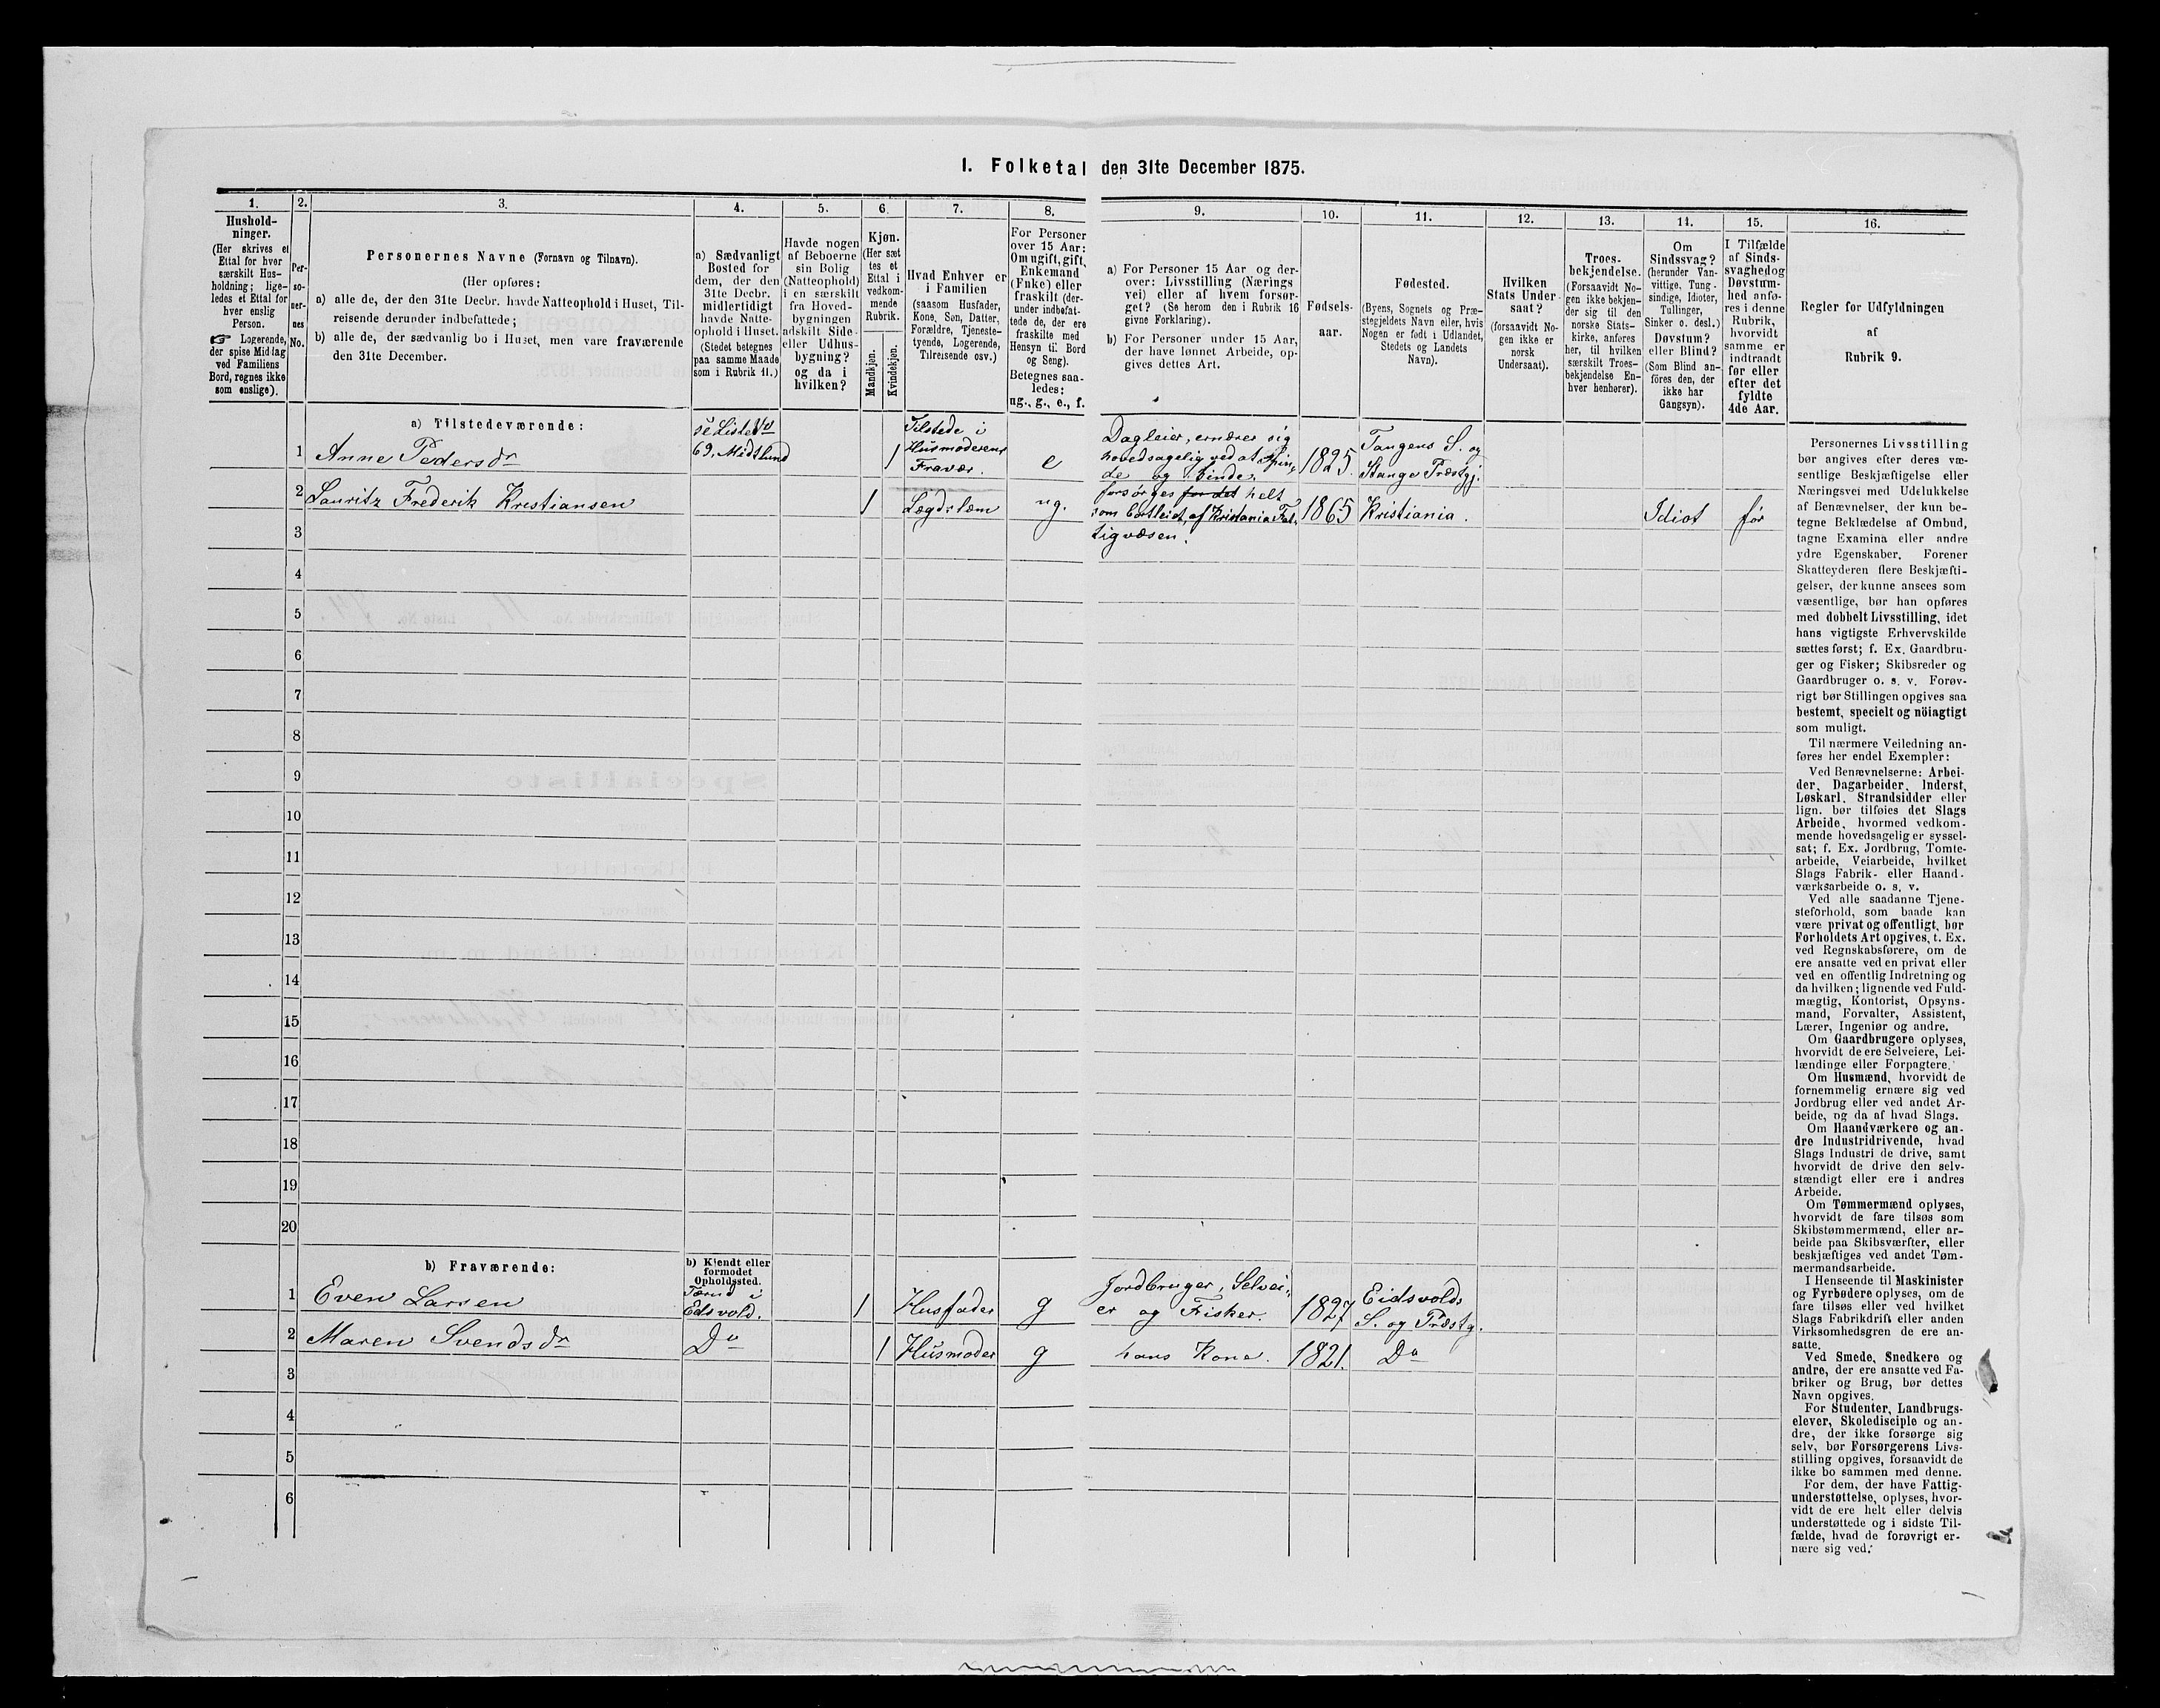 I. Folketal den 31te December 1875.
1.
Hushold-
ninger.
(Her skrives et
Ettal for hver
særskilt Hus-
holdning; lige-
ledes et Ettal for
hver enslig
Person.
☞ Logerende,
der spise Middag
ved Familiens
Bord, regnes ikke
som enslige).
2.
Per-
so-
ner-
nes
No.
3.
Personernes Navne (Fornavn og Tilnavn).
(Her opføres:
a) alle de, der den 31te Decbr. havde Natteophold i Huset, Til-
reisende derunder indbefattede;
b) alle de, der sædvanlig bo i Huset, men vare fraværende
den 31te December.
4.
a) Sædvanligt
Bosted for
dem, der den
31te Decbr.
midlertidigt
havde Natte-
ophold i Huset.
(Stedet betegnes
paa samme Maade
som i Rubrik 11.)
5.
Havde nogen
af Beboerne
sin Bolig
(Natteophold)
i en særskilt
fra Hoved-
bygningen
adskilt Side-
eller Udhus-
bygning?
og da i
hvilken?
6.
Kjøn.
(Her sæt
tes et
Ettal i
vedkom-
mende
Rubrik.
Mandkjøn.
Kvindekjøn.
7.
Hvad Enhver er
i Familien
(saasom Husfader,
Kone, Søn, Datter,
Forældre, Tjeneste-
tyende, Logerende,
Tilreisende osv.)
8.
For Personer
over 15 Aar:
Om ugift, gift,
Enkemand
(Enke) eller
fraskilt (der-
under indbefat-
tede de, der ere
fraskilte med
Hensyn til Bord
og Seng).
Betegnes saa-
ledes:
ug., g., e., f.
9.
a) For Personer 15 Aar og der-
over: Livsstilling (Nærings
vei) eller af hvem forsør-
get? (Se herom den i Rubrik 16
givne Forklaring).
b) For Personer under 15 Aar,
der have lønnet Arbeide, op-
gives dettes Art.
10.
Fødsels-
aar.
11.
Fødested.
(Byens, Sognets og Præ-
stegjeldets Navn eller, hvis
Nogen er født i Udlandet,
Stedets og Landets
Navn).
12.
Hvilken
Stats Under-
saat?
(forsaavidt No-
gen ikke er
norsk
Undersaat).
13.
Troes-
bekjendelse.
(Forsaavidt No-
gen ikke bekjen-
der sig til den
norske Stats-
kirke, anføres
her, til hvilken
særskilt Troes-
bekjendelse En-
hver henhører).
14.
Om
Sindssvag?
(herunder Van-
vittige, Tung-
sindige, Idioter,
Tullinger,
Sinker o. desl.)
Døvstum?
eller Blind?
(Som Blind an-
føres den, der
ikke har
Gangsyn).
15.
I Tilfælde
af Sinds-
svaghed og
Døvstum-
hed anfø-
res i denne
Rubrik,
hvorvidt
samme er
indtraadt
før eller
efter det
fyldte
4de Aar.
16.
Regler for Udfyldningen
af
Rubrik 9.
a) Tilstedeværende:
1 Anne Pedersdr se Liste No 69, Midtlund 1 Tilstede i Husmoderens Fravær. e Dagleier, ernærer sig hovedsagelig ved at Spinde og Binde. 1825. Tangens S. og Stange Præstgj.
2 Lauritz Frederik Kristiansen 1 Lægdslem ug. forsørges for det helt som bortleiet, af Kristiania Fattigvæsen. 1865 Kristiania. Idiot før
3
4
5
6
7
8
9
10
11
12
13
14
15
16
17
18
19
20
b) Fraværende:
b) Kjendt eller
formodet
Opholdssted.
1 Even Larsen Tærud i Edsvold. 1 Husfader g Jordbruger, Selveier og Fisker. 1827 Eidsvolds S. og Præstg.
2 Maren Svendsdr Do 1 Husmoder g hans Kone. 1821. Do
3
4
5
6
Personernes Livsstilling
bør angives efter deres væ-
sentlige Beskjæftigelse eller
Næringsvei med Udelukkelse
af Benævnelser, der kun be-
tegne Beklædelse af Ombud,
tagne Examina eller andre
ydre Egenskaber. Forener
Skatteyderen flere Beskjæfti-
gelser, der kunne ansees som
væsentlige, bør han opføres
med dobbelt Livsstilling, idet
hans vigtigste Erhvervskilde
sættes først; f. Ex. Gaardbru-
ger og Fisker; Skibsreder og
Gaardbruger o. s. v. Forøv-
rigt bør Stillingen opgives saa
bestemt, specielt og nöiagtigt
som muligt.
Til nærmere Veiledning an-
føres her endel Exempler:
Ved Benævnelserne: Arbei-
der, Dagarbeider, Inderst,
Løskarl, Strandsidder eller
lign. bør tilføies det Slags
Arbeide, hvormed vedkom-
mende hovedsagelig er syssel-
sat; f. Ex. Jordbrug, Tomte-
arbeide, Veiarbeide, hvilket
Slags Fabrik- eller Haand-
værksarbeide o. s. v.
Ved alle saadanne Tjene-
steforhold, som baade kan
være privat og offentligt, bør
Forholdets Art opgives, t. Ex.
ved Regnskabsførere, om de
ere ansatte ved en privat eller
ved en offentlig Indretning og
da hvilken; lignende ved Fuld-
mægtig, Kontorist, Opsyns-
mand, Forvalter, Assistent,
Lærer, Ingeniør og andre.
Om Gaardbrugere oplyses,
hvorvidt de ere Selveiere, Lei-
lændinge eller Forpagtere.
Om Husmænd, hvorvidt de
fornemmelig ernære sig ved
Jordbrug eller ved andet Ar-
beide, og da af hvad Slags.
Om Haandværkere og an-
dre Industridrivende, hvad
Slags Industri de drive, samt
hvorvidt de drive den selv-
stændigt eller ere i andres
Arbeide.
Om Tømmermænd oplyses,
hvorvidt de fare tilsøs som
Skibstømmermænd, eller ar-
beide paa Skibsværfter, eller
beskjæftiges ved andet Tøm-
mermandsarbeide.
I Henseende til Maskinister
og Fyrbødere oplyses, om de
fare tilsøs eller ved hvilket
Slags Fabrikdrift eller anden
Virksomhedsgren de ere an-
satte.
Ved Smede, Snedkere og
andre, der ere ansatte ved Fa-
briker og Brug, bør dettes
Navn opgives.
For Studenter, Landbrugs-
elever, Skoledisciple og an-
dre, der ikke forsørge sig
selv, bør Forsørgerens Livs-
stilling opgives, forsaavidt de
ikke bo sammen med denne.
For dem, der have Fattig-
understøttelse, oplyses, hvor-
vidt de ere helt eller delvis
understøttede og i sidste Til-
fælde, hvad de forøvrigt er-
nære sig ved.